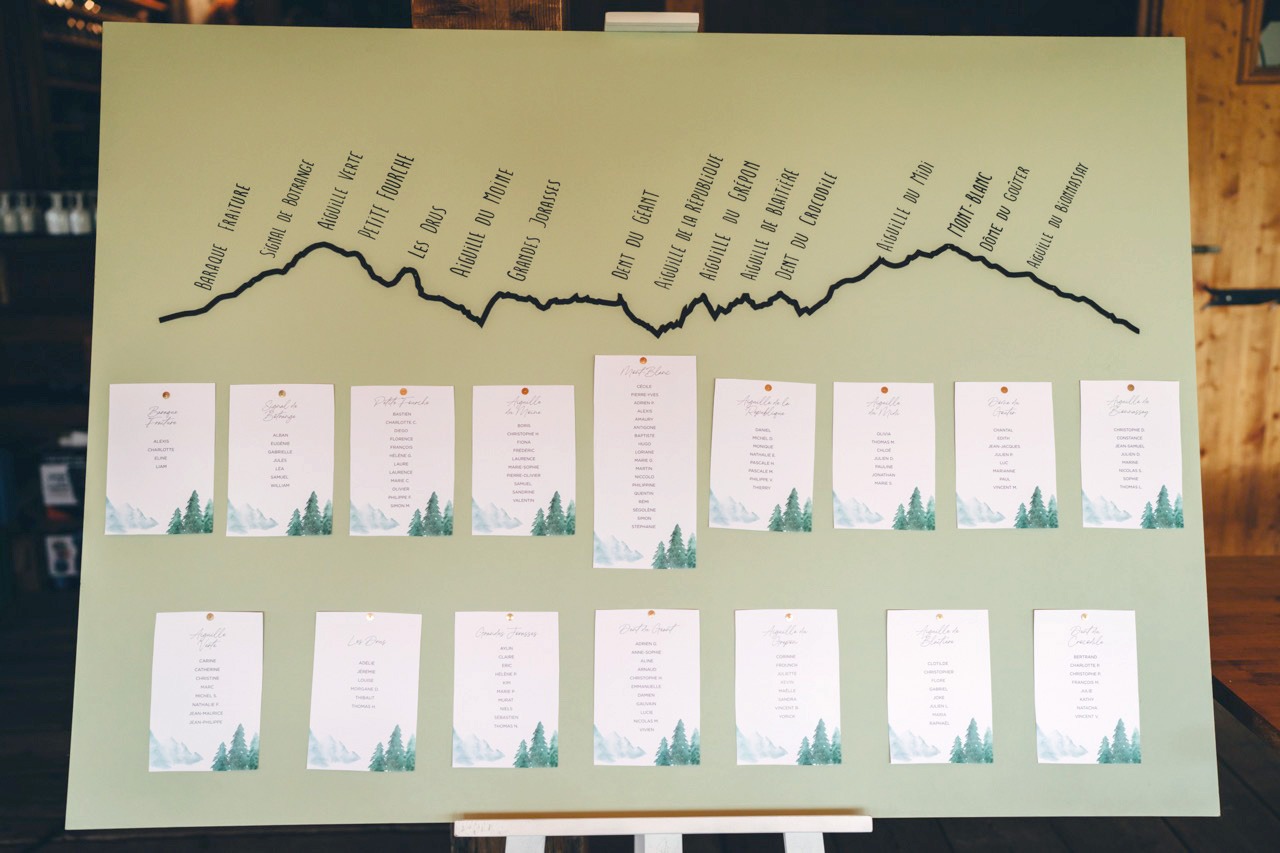 BARAQUE FRAITURE
SIGNAL DE BOTRANGE
AIGUILLE VERTE
PETITE FOURCHE
LES DRUS
AIGUILLE DU MOINE
GRANDES JORASSES
DENT DU GÉANT
AIGUILLE DE LA RÉPUBLIQUE
AIGUILLE DU GRÉPON
AIGUILLE DE BLATIÈRE
DENT DU CROCODILE
AIGUILLE DU MIDI
MONT-BLANC
DÔME DU GOÛTER
AIGUILLE DU BIONNASSAY
Baraque
Fraiture
ALEXIS
CHARLOTTE
ELINE
LIAM
Signal de
Botrange
ALBAN
EUGÉNIE
GABRIELLE
JULES
LÉA
SAMUEL
WILLIAM
Petite Fourche
BASTIEN
CHARLOTTE C.
DIEGO
FLORENCE
FRANÇOIS
HÉLÈNE G.
LAURE
LAURENCE
MARIE C.
OLIVIER
PHILIPPE F.
SIMON M.
Aiguille
du Moine
BORIS
CHRISTOPHE H.
FIONA
FRÉDÉRIC
LAURENCE
MARIE-SOPHIE
PIERRE-OLIVIER
SAMUEL
SANDRINE
VALENTIN
Mont Blanc
CÉCILE
PIERRE-YVES
ADRIEN P.
ALEXIS
AMAURY
ANTIGONE
BAPTISTE
HUGO
LORIANE
MARIE G.
MARTIN
NICCOLO
PHILIPPINE
QUENTIN
RÉMI
SÉGOLÈNE
SIMON
STÉPHANIE
Aiguille de la
République
DANIEL
MICHEL G.
MONIQUE
NATHALIE S.
PASCALE H.
PASCALE M.
PHILIPPE V.
THIERRY
Aiguille du
Midi
OLIVIA
THOMAS M.
CHLOÉ
JULIEN G.
PAULINE
JONATHAN
MARIE S.
Goûter
CHANTAL
EDITH
JEAN-JACQUES
JULIEN P.
LUC
MARIANNE
PAUL
VINCENT M.
Aiguille du
Bionnassay
CHRISTOPHE D.
CONSTANCE
JEAN-SAMUEL
JULIEN D.
MARINE
NICOLAS S.
SOPHIE
THOMAS L.
Aiguille
Verte
CARINE
CATHERINE
CHRISTINE
MARC
MICHEL S.
NATHALIE F.
JEAN-MAURICE
JEAN-PHILIPPE
Les Drus
ADÉLIE
JÉRÉMIE
LOUISE
MORGANE G.
THIBAUT
THOMAS H.
Grandes Jorasses
AYLIN
CLAIRE
ERIC
HÉLÈNE P.
KIM
MARIE P.
MURAT
NIELS
SÉBASTIEN
THOMAS N.
Dent du Géant
ADRIEN G.
ANNE-SOPHIE
ALINE
ARNAUD
CHRISTOPHE W.
EMMANUELLE
DAMIEN
GAUVAIN
LUCIE
NICOLAS M.
VIVIEN
Aiguille du
Grépon
CORINNE
FREDERICK
JULIETTE
KEVIN
MAËLLE
SANDRA
VINCENT R.
YORICK
Aiguille de
Blatière
CLOTILDE
CHRISTOPHER
FLORE
GABRIEL
JULIEN L.
RAPHAËL
Dent du
Crocodile
BERTRAND
CHARLOTTE P.
FRANÇOIS M.
JULIE
KATHY
NATACHA
VINCENT V.